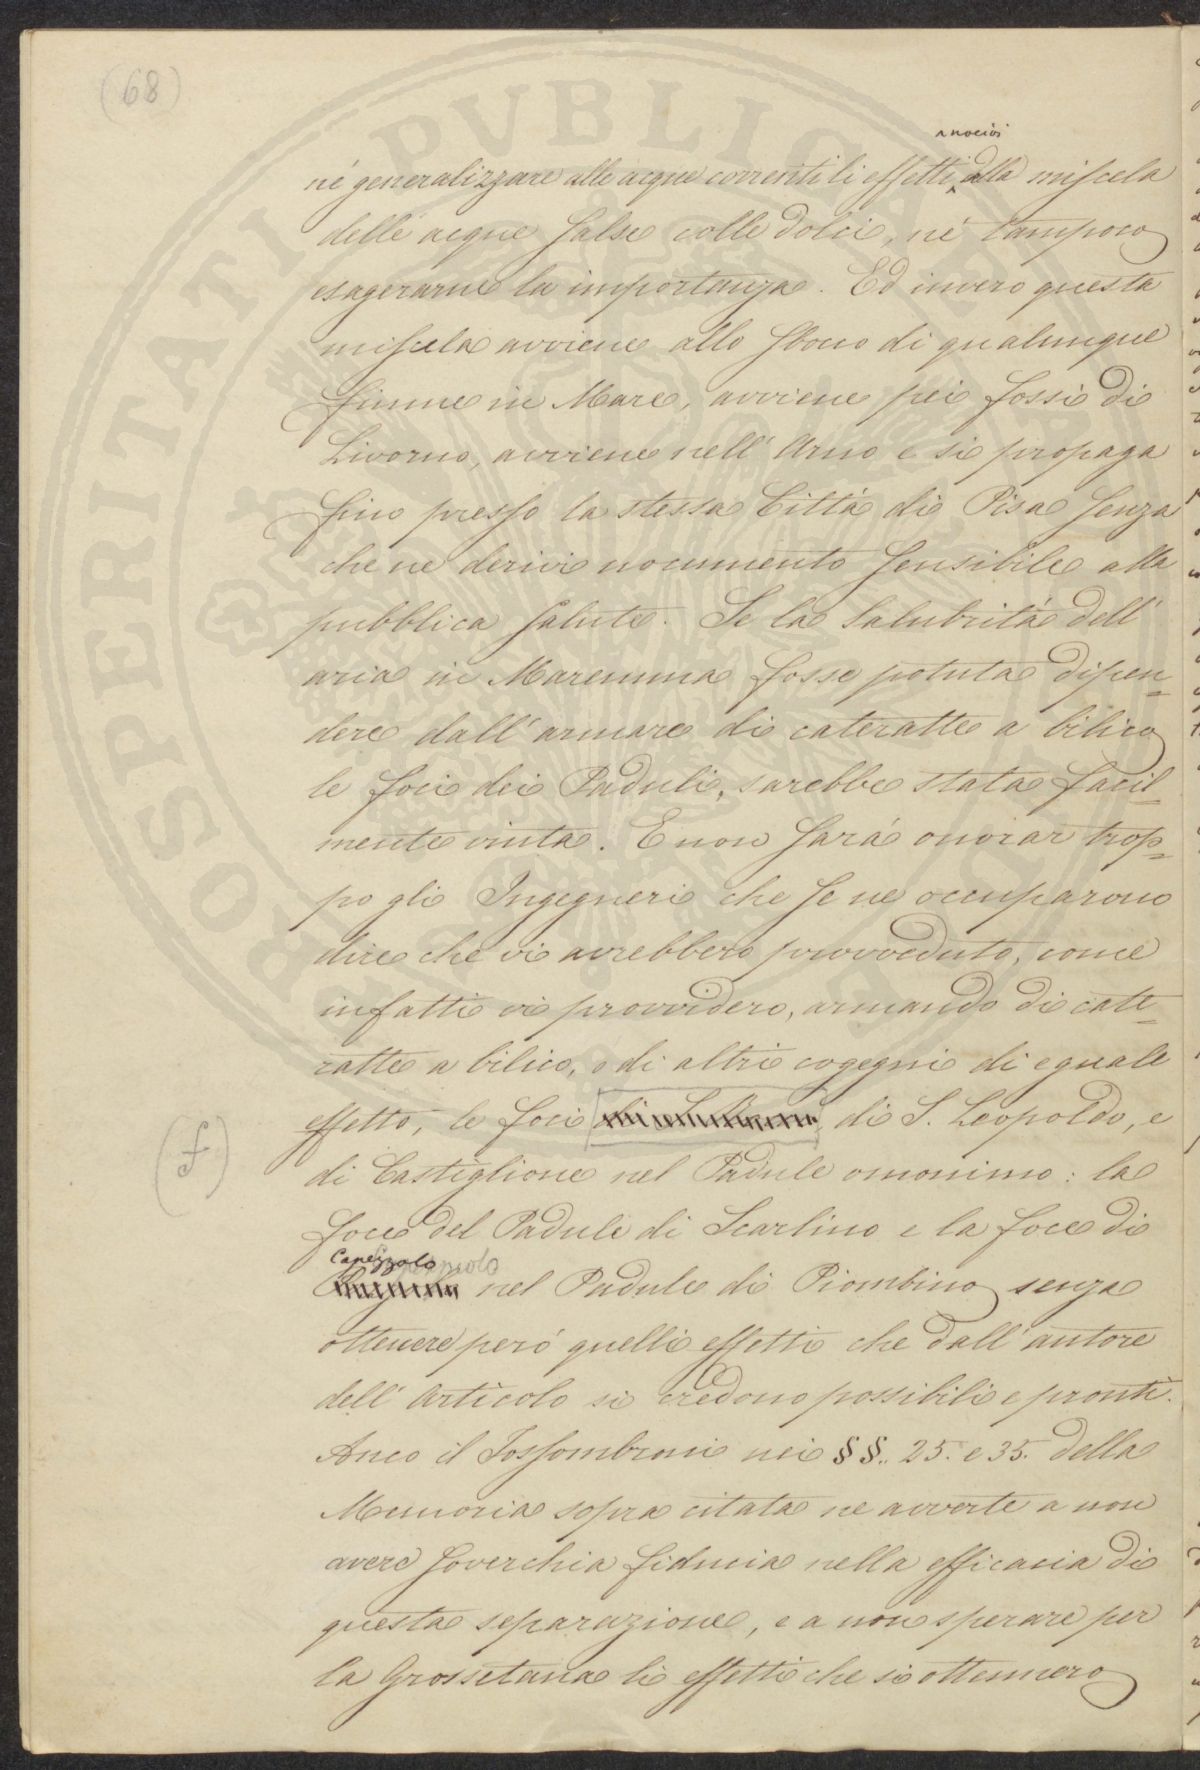 (68)
nocivi
né generalizzare alle acque correnti li effetti della miscela
delle acque salse colle dolci, né tampoco
esagerarne la importanza. Ed invero questa
miscela avviene allo sbocco di qualunque
fiume in Mare, avviene pei fossi di
Livorno, avviene nell' Arno e si propaga
fino presso la stessa Città di Pisa senza
che ne derivi nocumento sensibile alla
pubblica salute. Se la salubrità dell'
aria in Maremma fosse potuta dipen=
dere dall' armare di cateratte a bilico
le foci dei Paduli, sarebbe stata facil=
mente vinta. E non sarà onorar trop=
po gli Ingegneri che se ne occuparono
dire che vi avrebbero provveduto, come
infatti vi provvidero, armando di cate=
ratte a bilico, o di altri cogegni di eguale
effetto, le foci di S. Leopoldo, e
(f)
di Castiglione nel Padule omonimo: la
foce del Padule di Scarlino e la foce di
Capezzolo
nel Padule di Piombino senza
ottenere però quelli effetti che dall' autore
dell' Articolo si credono possibili e pronti.
Anco il Fossombroni nei §§. 25. e 35. della
Memoria sopra citata ne avverte a non
avere soverchia fiducia nella efficacia di
questa separazione, e a non sperare per
la Grossetana li effetti che si ottennero
PROSPERITATI PVBLICAE